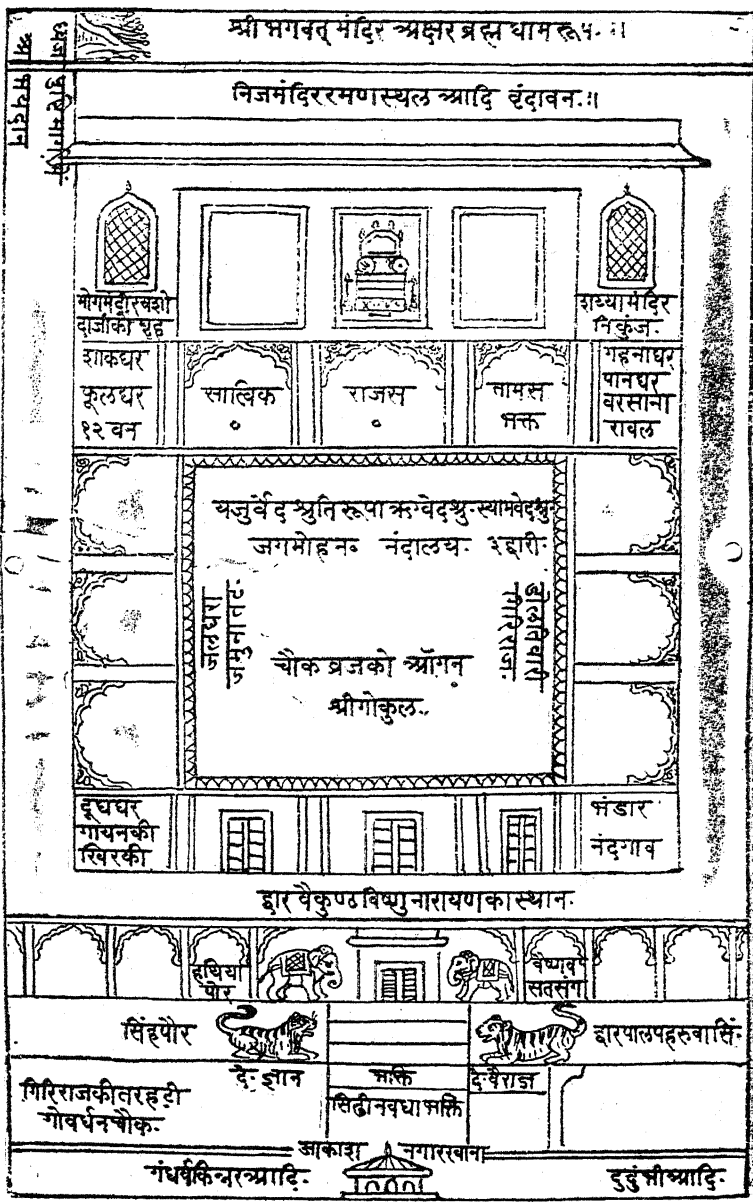 श्री भगवत् मंदिर अक्षर ब्रह्म धाम रूप.॥
ध्वजा पुष्टि मार्ग
श्री अभयदान
निजमंदिररमणस्थल आदि वृंदावन.॥
भोगमंदीरयशो
दाजीको गृह
शय्यामंदिर
निकुंज.
शाकघर
फूलघर
१२ वन
सात्विक
राजस
तामस
भक्त
गहनाघर
पानघर
बरसाना
रावल
यजुर्वेद श्रुतिरूपा ऋग्वेदश्रु-स्यामवेदश्रु-
जगमोहन. नंदालय. ३ द्वारी.
जलघरा
जमुनातट.
डोलतिवारी
गिरिराज.
चौक व्रजको आँगन
श्रीगोकुल..
दूधघर
गायनकी
खिरकी
भंडार
नंदगाव
द्वार वैकुण्ठ विष्णु नारायण का स्थान.
हथिया
पोर
वैष्णव
सतसंग
सिंहपौर
द्वारपालपहरुवासिं.
दे. ज्ञान
भक्ति
दे. वैराज्ञ
गिरिराजकीतरहटी
गोवर्धनचौक.
सिढीनवधाभक्ति
आकाश नगारखाना
गंधर्वकिन्नरआदि.
दुदुंभीआदि.